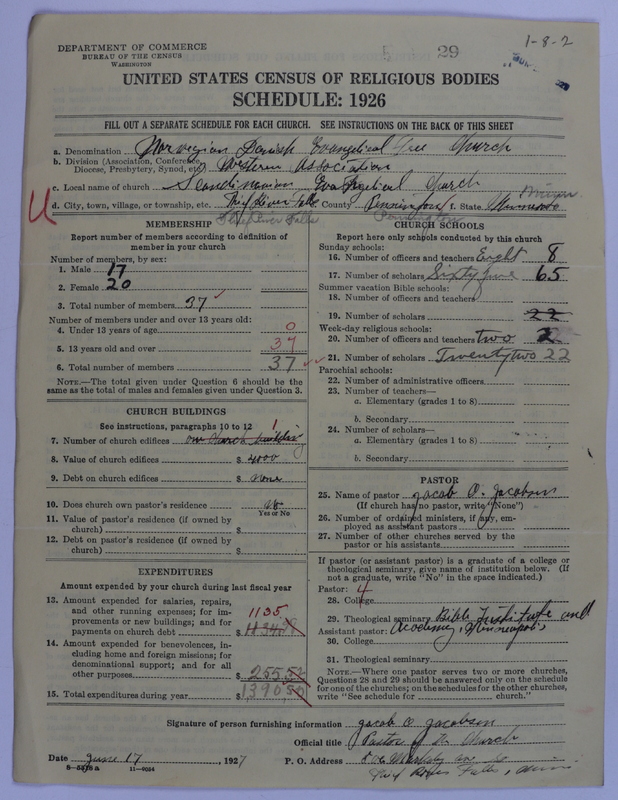 1-8-2
29
DEPARTMENT OF COMMERCE
BUREAU OF THE CENSUS
WASHINGTON
UNITED STATES CENSUS OF RELIGIOUS BODIES
SCHEDULE: 1926
FILL OUT A SEPARATE SCHEDULE FOR EACH CHURCH. SEE INSTRUCTIONS ON THE BACK OF THIS SHEET
a. Denomination Norwegian Danish Evangelical Free Church
b. Division (Association, Conference, Diocese, Presbytery, Synod, etc.) Western Association
c. Local name of church Scandinavian Evangelical Church
d. City, town, village, or township, etc. Thief River Falls e. County Pennington f. State Minnesota
Thief River Falls Pennington
MEMBERSHIP
Report number of members according to definition of
member in your church
Number of members, by sex:
1. Male 17
2. Female 20
3. Total number of members 37
Number of members under and over 13 years old:
4. Under 13 years of age 0
5. 13 years old and over 37
6. Total number of members 37
NOTE.—The total given under Question 6 should be the
same as the total of males and females given under Question 3.
CHURCH BUILDINGS
See instructions, paragraphs 10 to 12
7. Number of church edifices one church building 1
8. Value of church edifices $ 4000
9. Debt on church edifices $ None
10. Does church own pastor's residence No
Yes or No
11. Value of pastor's residence (if owned by
church) $
12. Debt on pastor's residence (if owned by
church) $
EXPENDITURES
Amount expended by your church during last fiscal year
13. Amount expended for salaries, repairs,
and other running expenses; for im-
provements or new buildings; and for
payments on church debt $ 1135
14. Amount expended for benevolences, in-
cluding home and foreign missions; for
denominational support; and for all
other purposes $ 255
15. Total expenditures during year $ 1390
CHURCH SCHOOLS
Report here only schools conducted by this church
Sunday schools:
16. Number of officers and teachers Eight 8
17. Number of scholars Sixty five 65
Summer vacation Bible schools:
18. Number of officers and teachers
19. Number of scholars 22
Week-day religious schools:
20. Number of officers and teachers two 2
21. Number of scholars Twenty two 22
Parochial schools:
22. Number of administrative officers
23. Number of teachers—
a. Elementary (grades 1 to 8)
b. Secondary
24. Number of scholars—
a. Elementary (grades 1 to 8)
b. Secondary
PASTOR
25. Name of pastor Jacob O. Jacobsen
(If church has no pastor, write "None")
26. Number of ordained ministers, if any, em-
ployed as assistant pastors
27. Number of other churches served by the
pastor or his assistants
If pastor (or assistant pastor) is a graduate of a college or
theological seminary, give name of institution below. (If
not a graduate, write "No" in the space indicated.)
Pastor: 4
28. College
29. Theological seminary Bible Institute and
Assistant pastor: Academy, Minneapolis
30. College
31. Theological seminary
NOTE.—Where one pastor serves two or more churches,
Questions 28 and 29 should be answered only on the schedule
for one of the churches; on the schedules for the other churches,
write "See schedule for church."
Signature of person furnishing information Jacob O. Jacobsen
Official title Pastor of the Church
Date June 17, 1927 P. O. Address
Thief River Falls, Minn.
8-5518a 11-9024